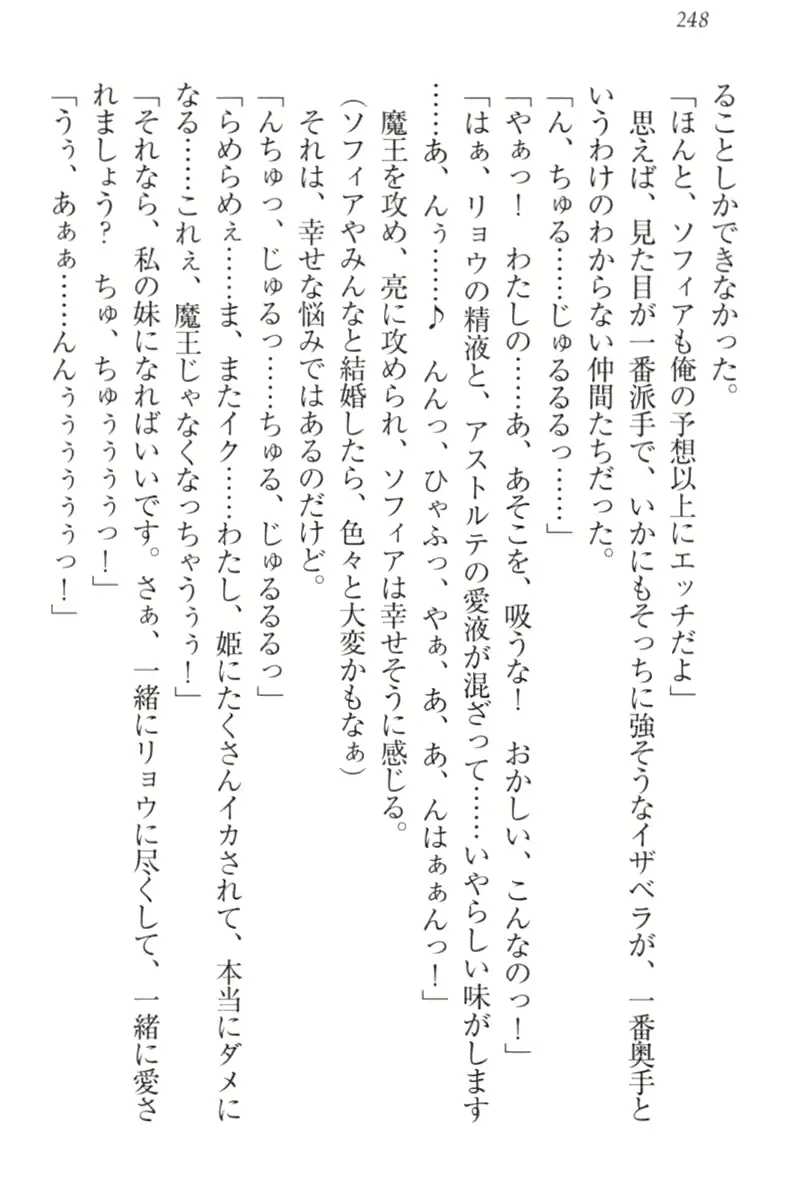 248
ることしかできなかった。
「ほんと、ソフィアも俺の予想以上にエッチだよ」
思えば、見た目が一番派手で、いかにもそっちに強そうなイザベラが、一番奥手と
いうわけのわからない仲間たちだった。
「ん、ちゅる……じゅるるるっ……」
「やぁっ！　わたしの……あ、あそこを、吸うな！　おかしい、こんなのっ！」
「はぁ、リョウの精液と、アストルテの愛液が混ざって……いやらしい味がします
……あ、んぅ……♪　んんっ、ひゃふっ、やぁ、あ、あ、んはぁぁんっ！」
魔王を攻め、亮に攻められ、ソフィアは幸せそうに感じる。
（ソフィアやみんなと結婚したら、色々と大変かもなぁ）
それは、幸せな悩みではあるのだけど。
「んちゅっ、じゅるっ……ちゅる、じゅるるるっ」
「らめらめぇ……ま、またイク……わたし、姫にたくさんイカされて、本当にダメに
なる……これぇ、魔王じゃなくなっちゃうぅぅ！」
「それなら、私の妹になればいいです。さぁ、一緒にリョウに尽くして、一緒に愛さ
れましょう？　ちゅ、ちゅぅぅぅぅっ！」
「うぅ、あぁぁ……んんぅぅぅぅぅぅっ！」